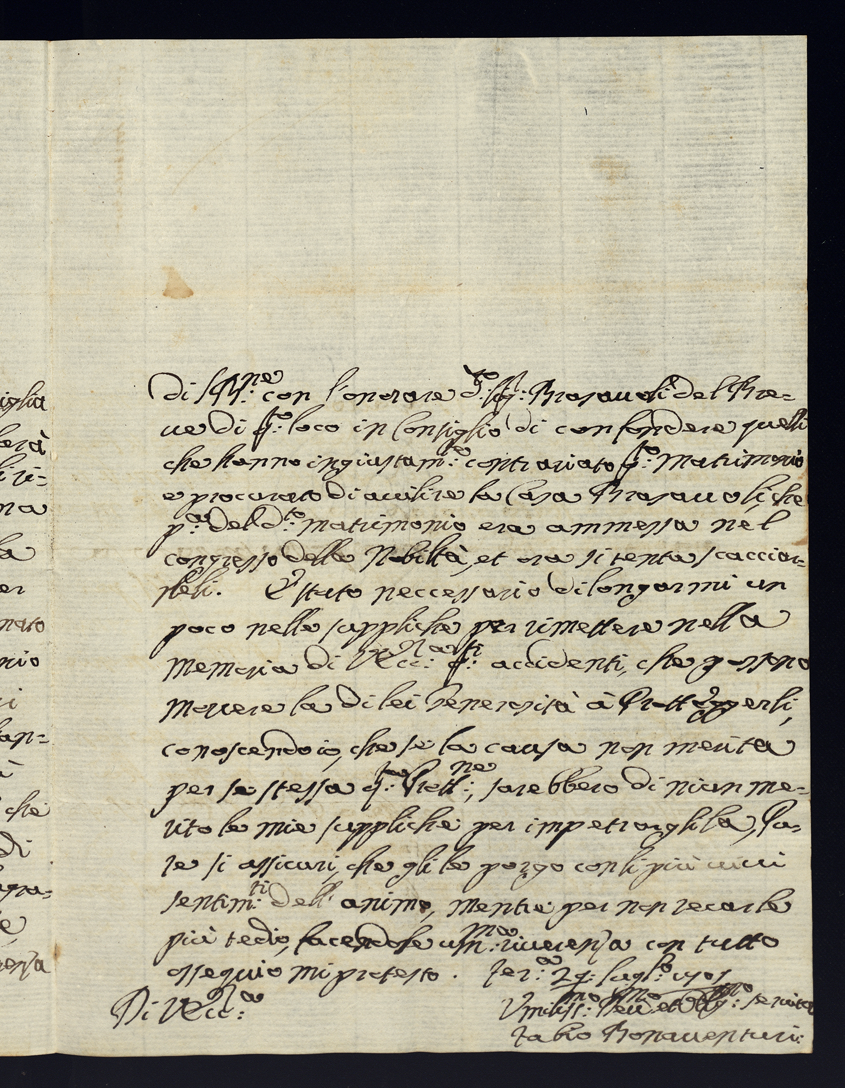 iglia
con l'onorare Brasavoli del Bre=
ue di q:to loco in Consiglio di confondere quelli
che hanno ingiustam:te contrariato q:to Matrimonio
e procurato di auilire la Casa Brasauoli, che
p:a del d:to Matrimonio era ammessa nel
congresso della Nobiltà, et ora si tenta scacciar=
È stato neccessario dilongarmi un
poco nelle suppliche per rimettere nella
memoria di V Ecc:za q:ti accidenti, che possono
mouere la di lei Generosità à Protteggerli,
conoscendo io, che se la causa non merita
per se stessa q:ta Prott:ne, sarebbero di niun me=
rito le mie suppliche per impetrargliela, Pu=
re si assicuri, che gli le porgo con li più uiui
sentim:ti dell' animo, mentre per non recarle
più tedio, facendole um:ma riuerenza con tutto
ossequio mi protesto. Fer:a 29: Lugl:o
Di V Ecc:za
Vmiliss:mo Deu:mo et Obblig:mo Seruitore
Fabio Bonauenturi: